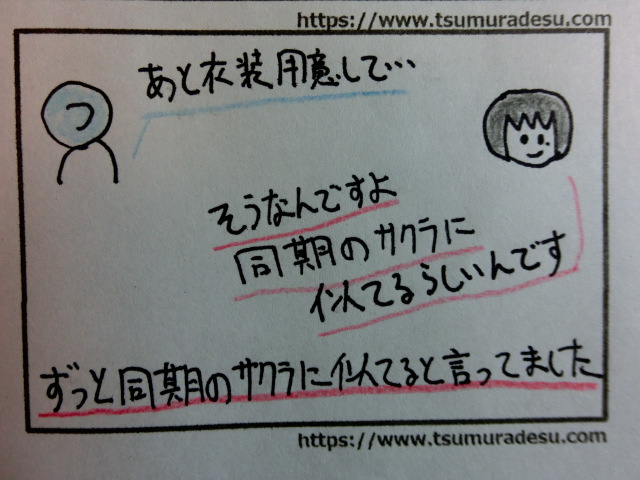 https://www.tsumuradesu.com
あと衣装用意して…
つ
そうなんですよ
同期のサクラに
似てるらしいんです
ずっと同期のサクラに似てると言ってました
https://www.tsumuradesu.com